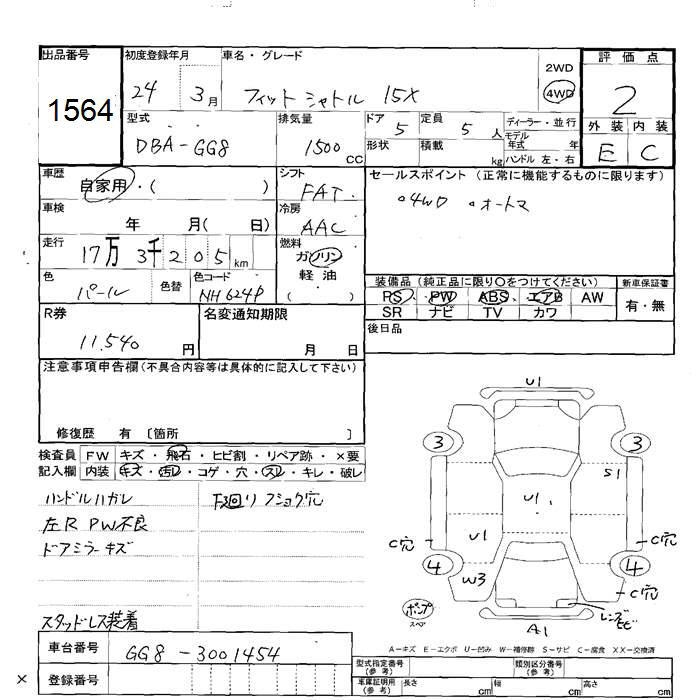 出品番号
1564
初度登録年月
24 3月
車名・グレード
フィットシャトル 15X
2WD
4WD
評価点
2
外装 内装
E C
型式
DBA-GG8
排気量
1500 CC
ドア 5
定員 5 人
形状
積載 kg
ディーラー・並行
モデル年式 年
ハンドル 左・右
車歴
自家用・( )
シフト
FAT
セールスポイント (正常に機能するものに限ります)
○4WD ○オートマ
車検
年 月( 日)
冷房
AAC
走行
17万3千205km
燃料
ガソリン
軽油
( )
色
パール
色替
色コード
NH624P
装備品(純正品に限り○をつけてください)
PS PW ABS エアB AW
SR ナビ TV カワ
新車保証書
有・無
R券
11.540 円
名変通知期限
月 日
後日品
注意事項申告欄(不具合内容等は具体的に記入して下さい)
修復歴 有 〔箇所 〕
検査員記入欄
FW キズ・飛石・ヒビ割・リペア跡・×要
内装 キズ・汚レ・コゲ・穴・スレ・キレ・破レ
ハンドルハガレ
左R PW不良
ドアミラーキズ
スタッドレス装着
下廻り フショク穴
U1
3
3
S1
U1
U1
C穴
C穴
4
4
W3
C穴
ポンプ
スペア
レンズヒビ
A1
A-キズ E-エクボ U-凹み W-補修跡 S-サビ C-腐食 XX-交換済
車台番号
GG8-3001454
×
登録番号
型式指定番号(参考)
類別区分番号(参考)
車庫証明用(参考)
長さ cm
幅 cm
高さ cm